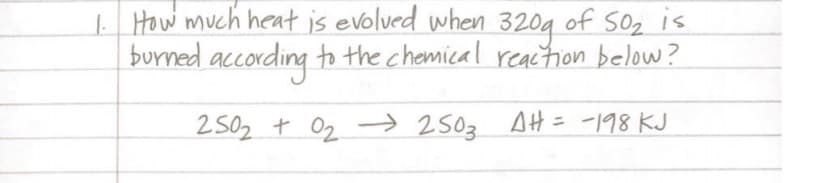 1. How much heat is evolved when 320g of SO₂ is
burned according to the chemical reaction below?
2SO₂ + O₂ → 2SO₃ ΔH = -198 KJ